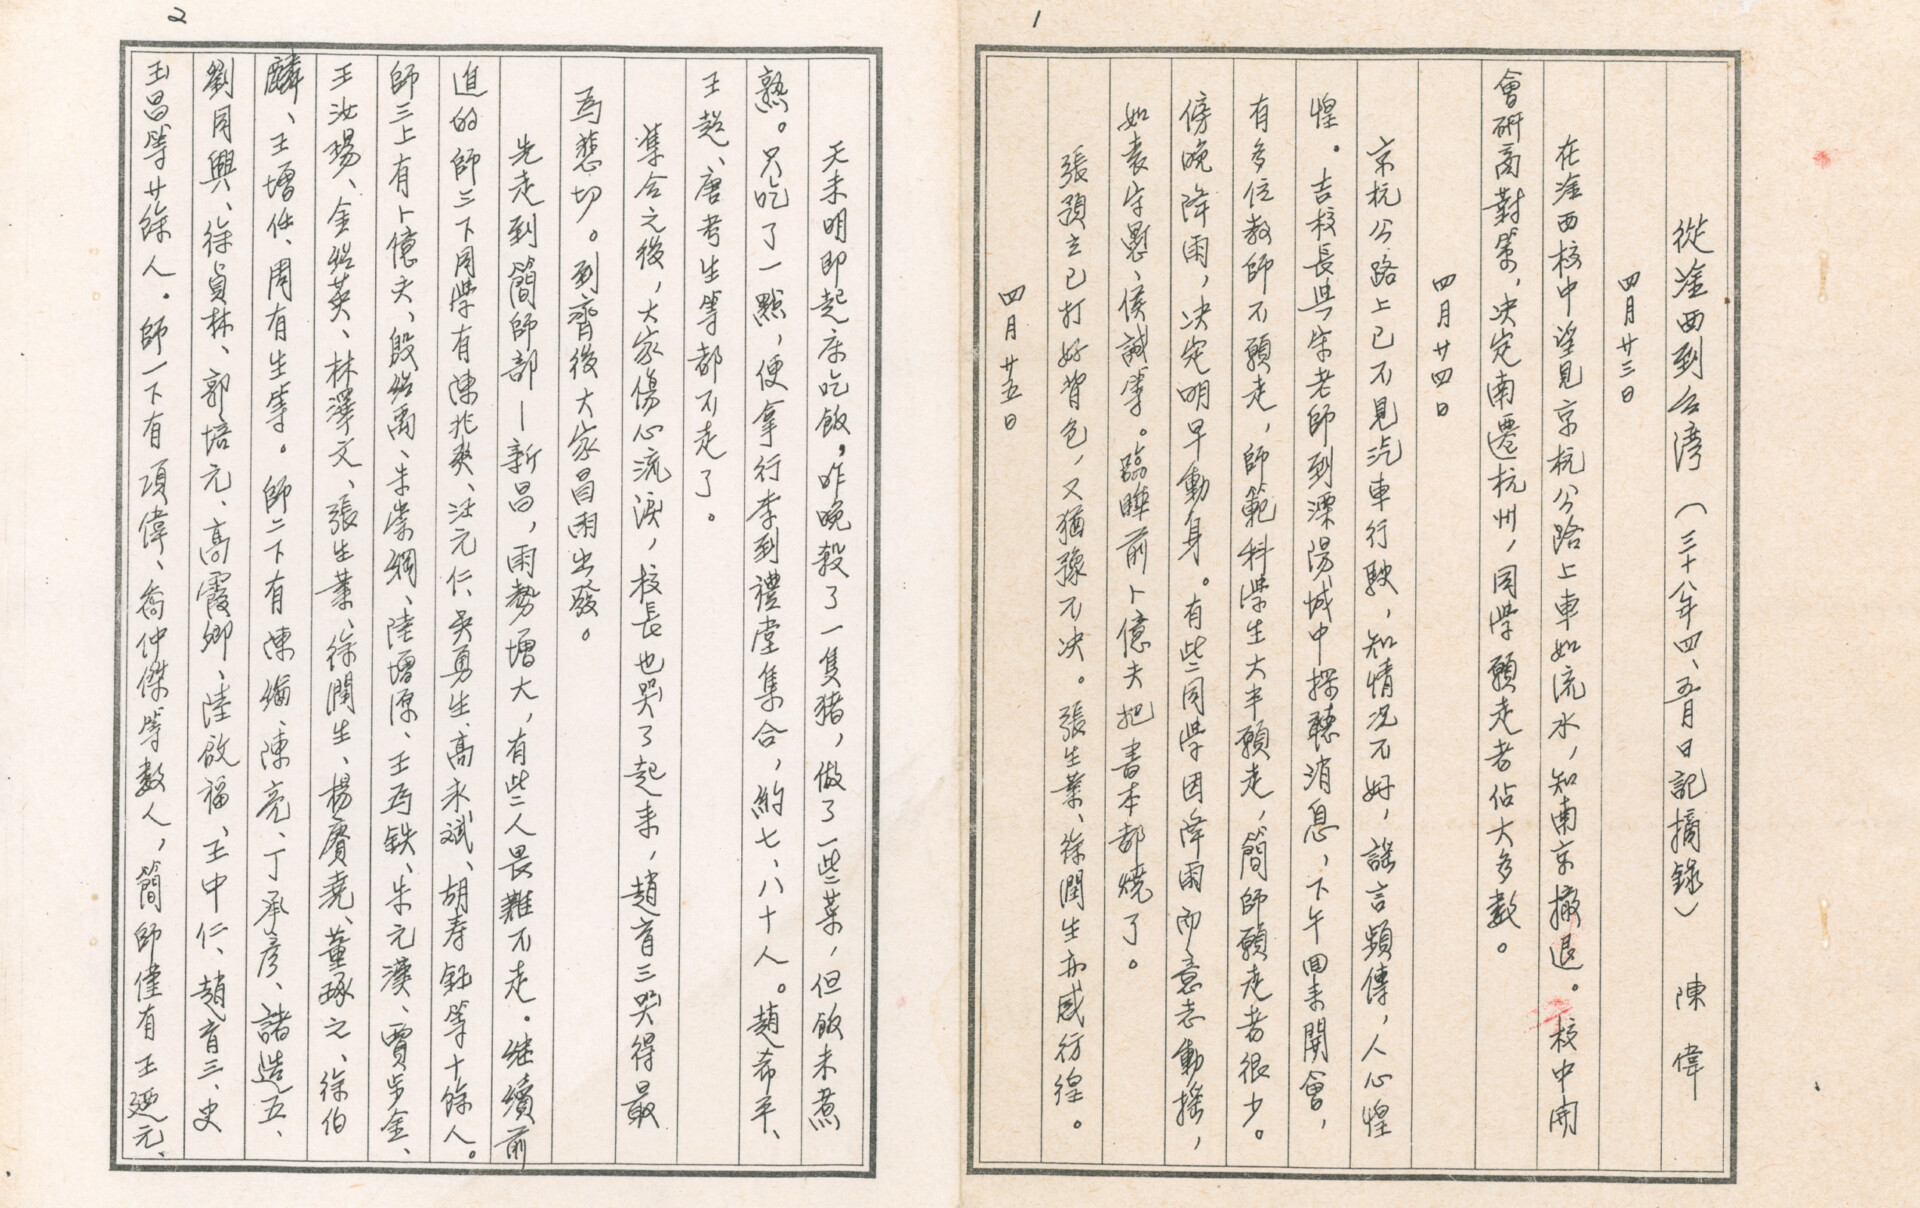 1
從淦西到台湾（三十八年四、五月日記摘錄） 陳偉
四月廿三日
在淦西校中望見京杭公路上車如流水，知南京撤退。校中開
會研商對策，决定南遷杭州，同學願走者佔大多數。
四月廿四日
京杭公路上已不見汽車行駛，知情况不好，謠言頻傳，人心惶
惶。吉校長與朱老師到溧陽城中探聽消息，下午回来開會，
有多位教師不願走，師範科學生大半願走，簡師願走者很少。
傍晚降雨，决定明早動身。有些同學因降雨而意志動摇，
如袁守恩、侯誠等。臨睡前卜億夫把書本都燒了。
張預立已打好背包，又猶豫不决。張生業、徐潤生亦感彷徨。
四月廿五日
2
天未明即起床吃飯，昨晚殺了一隻猪，做了一些菜，但飯未煮
熟。只吃了一點，便拿行李到禮堂集合，約七、八十人。趙希平、
王超、唐考生等都不走了。
集合之後，大家傷心流淚，校長也哭了起来，趙育三哭得最
為悲切。到齊後大家冒雨出發。
先走到簡師部—新昌，雨勢增大，有些人畏難不走。继續前
進的師三下同學有陳兆爽、汪元仁、吳勇生、高永斌、胡寿鈺等十餘人。
師三上有卜億夫、殷紹禹、朱崇綱、陸增源、王為鉄、朱元漢、賈步金、
王汝揚、金紹英、林澤文、張生業、徐潤生、楊賡堯、董琢之、徐伯
麟、王增任、周有生等。師二下有陳綸、陳亮、丁承彥、諸造五、
劉同興、徐貞林、郭培元、高霞卿、陸啟福、王中仁、趙育三、史
玉昌等廿餘人。師一下有項偉、喬仲傑等數人，簡師僅有王迺元、